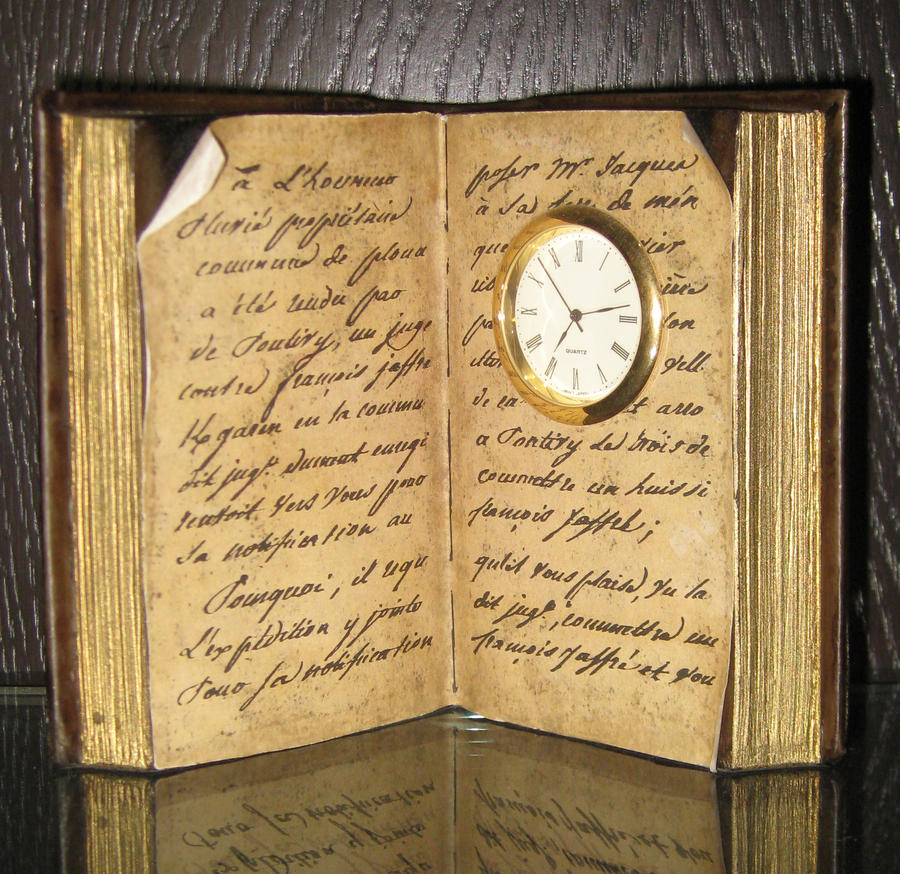 à L'honneur
propriétaire
commune de ploua
a été rendu par
de Pontivy, un juge
contre françois jaffre
en la commu
dit jugt. dument enregi
vers vous pour
sa notification au
Pourquoi, il requ
L'expédition y jointe
Pour sa notification
poser Mr Jacques
à sa de mén
que ier
ière
pa lon
de ca et arro
a Pontivy Le trois de
commettre un huissi
françois Jaffré;
qu'il vous plaise, Vu la
dit jugt, commettre un
françois Jaffré et vou
XII
I
II
III
IIII
V
VI
VII
VIII
IX
X
XI
QUARTZ